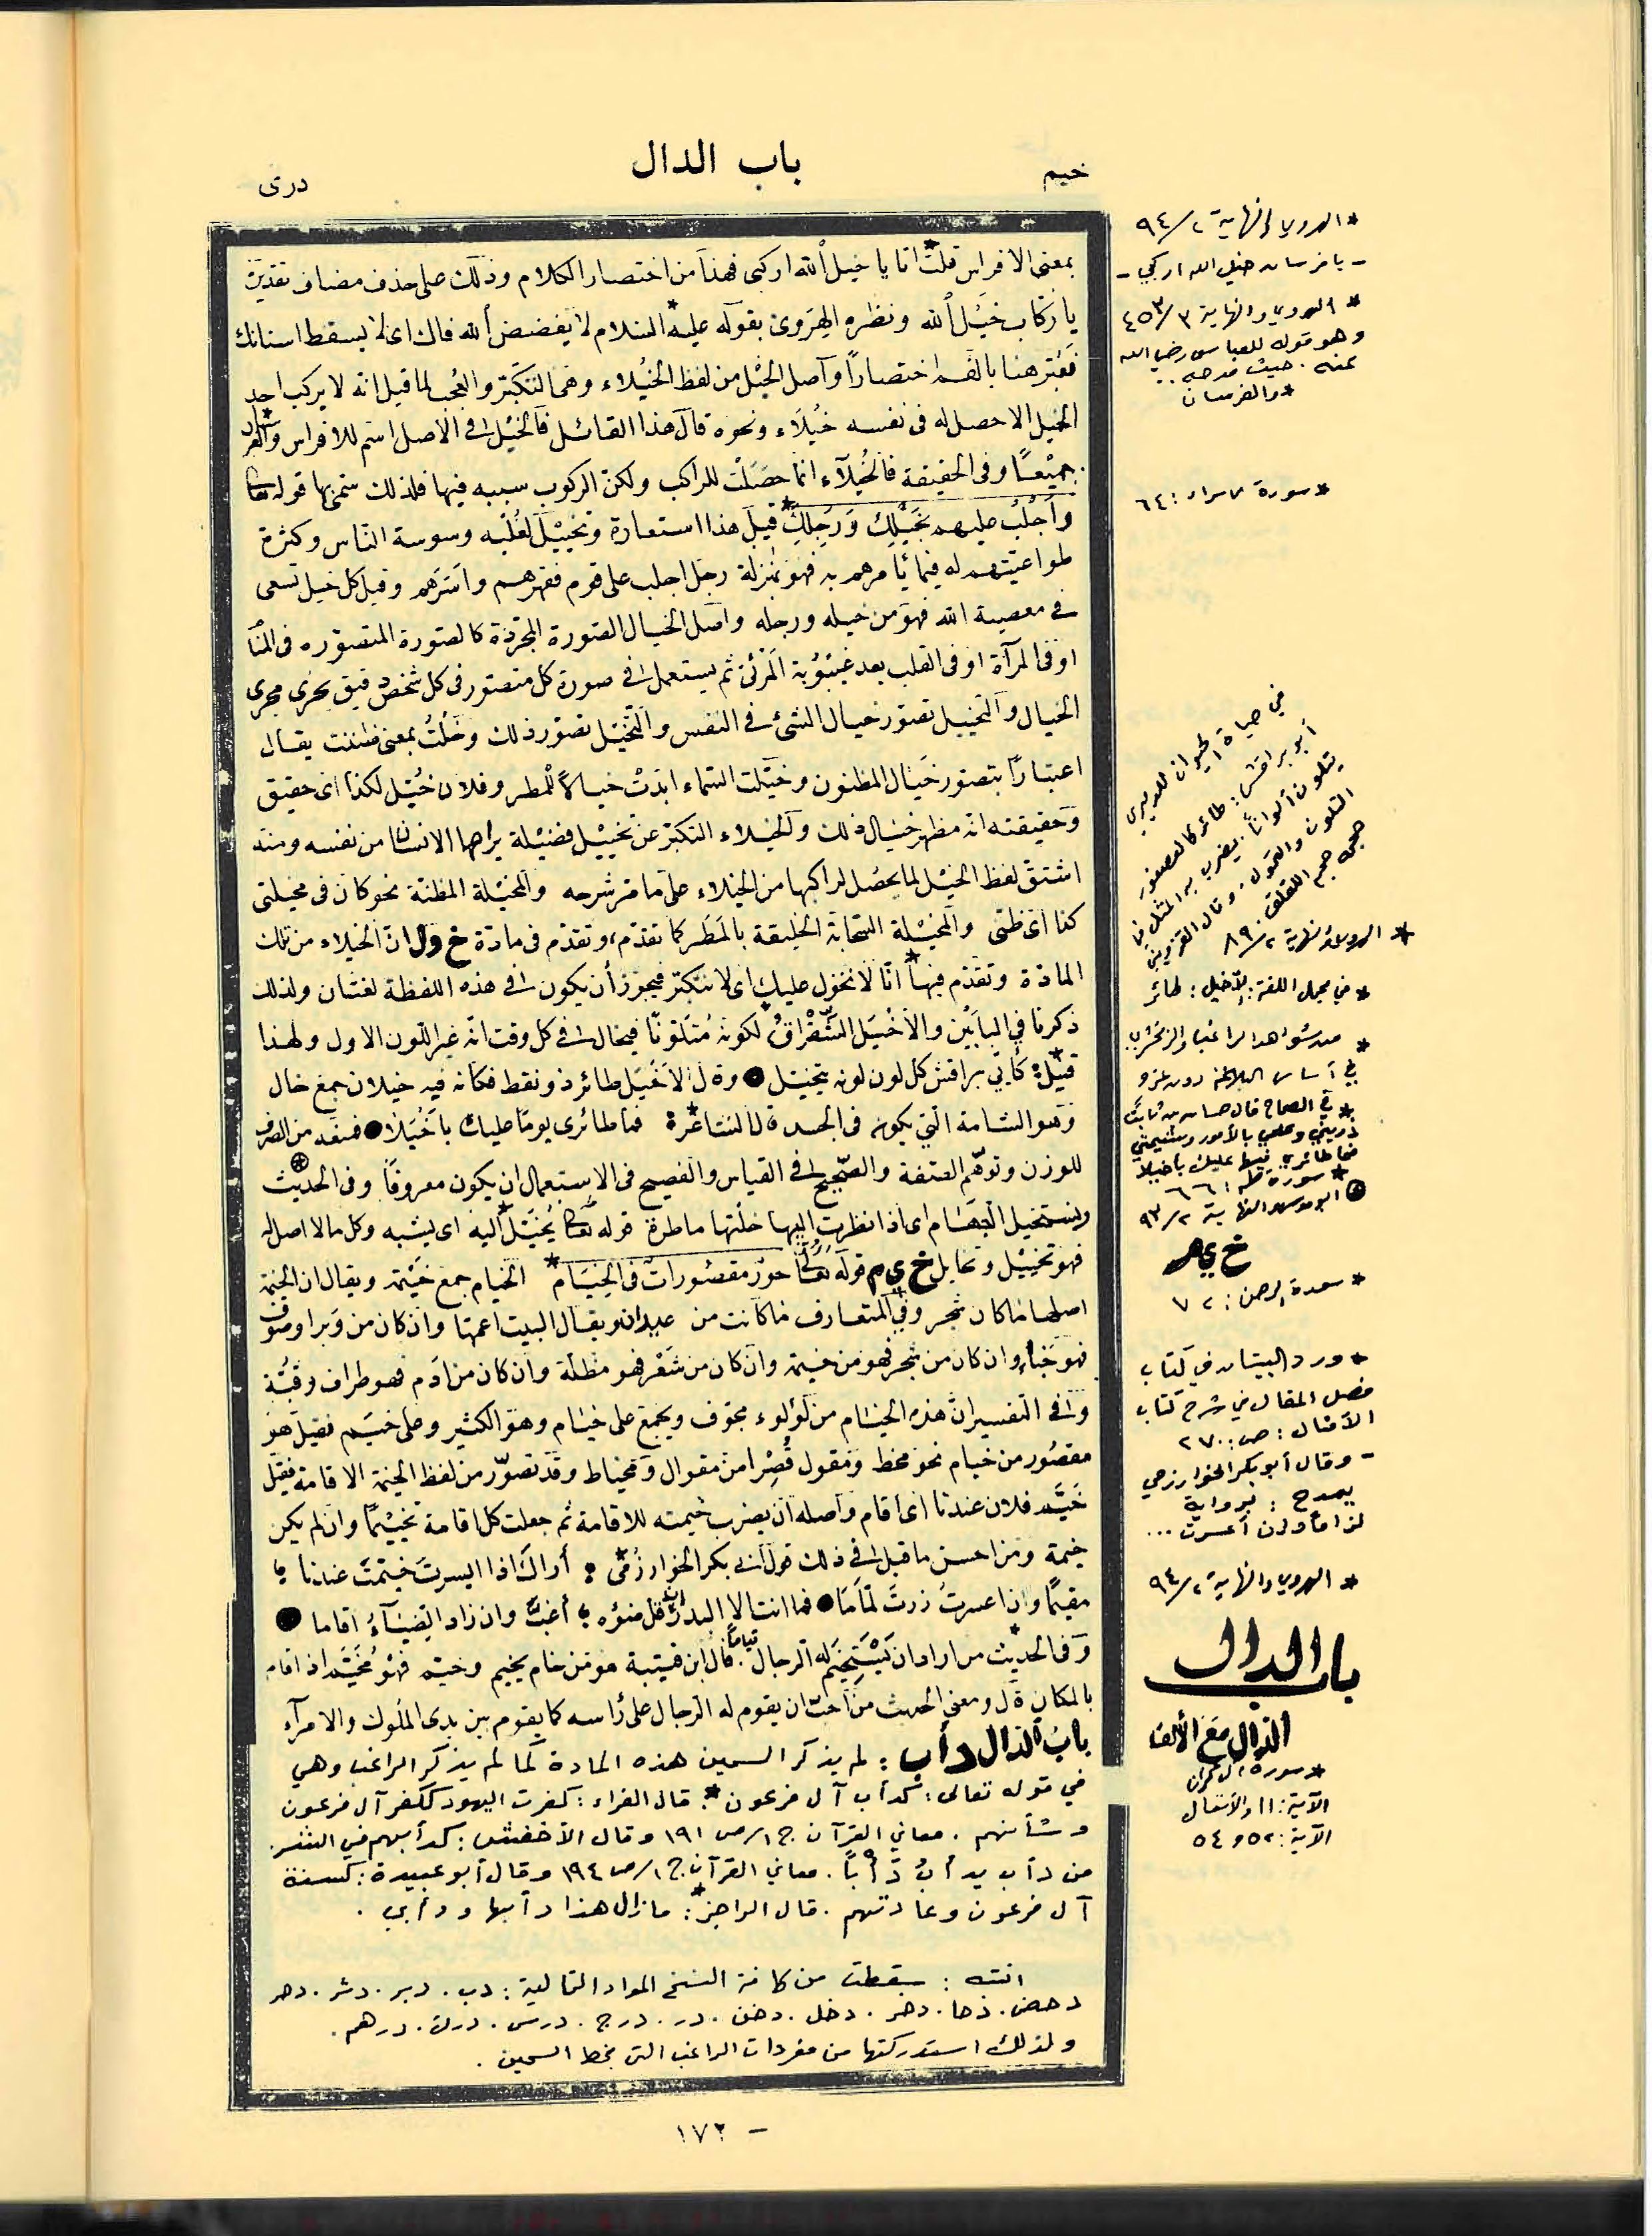 خيم
باب الدال
درى
بمعنى الافراس قلت انا يا خيل الله اركبى فهذا من اختصار الكلام وذلك على حذف مضاف تقديره
يا ركاب خيل الله ونظره الهروى بقوله عليه السلام لا يفضض الله فاك اى لا يسقط اسنانك
فعبر هنا بالفم اختصاراً وآصل الخيل من لفظ الخيلاء وهى التكبر والعجب لما قيل انه لا يركب احد
الخيل الا حصل له فى نفسه خيلاء ونحوه قال هذا القائل فالخيل فى الاصل اسم للافراس والفرسان
جميعاً وفى الحقيقة فالخيلاء انما حصلت للراكب ولكن الركوب سببه فيها فلذلك سمى بها قوله تعالى
وأجلب عليهم بخيلك ورجلك قيل هذا استعارة وتخييل لغلبه وسوسة الناس وكثرة
طواعيتهم له فيما يأمرهم به فهو بمنزلة رجل اجلب على قوم فقهرهم وقيل كل خيل تسعى
فى معصية الله فهو من خيله ورجله واصل الخيال الصورة المجردة كالصورة المتصوره فى المنام
او فى المرآة او فى القلب بعد غيبوبة المرئى ثم يستعمل فى صورة كل متصور فى كل شخص دقيق يجرى مجرى
الخيال والتخييل تصور خيال الشئ فى النفس والتخيل تصور ذلك وخلت بمعنى ظننت يقال
اعتباراً بتصور خيال المظنون وخيلت السماء ابدت خيالاً للمطر وفلان خيل لكذا اى حقيق
وحقيقته انه مظهر خيال ذلك والخيلاء التكبر عن تخييل فضيلة يراها الانسان من نفسه ومنه
اشتق لفظ الخيل لما يحصل لراكبها من الخيلاء على ما مر شرحه والمخيلة المظنة نحو كان فى مخيلتى
كذا اى ظنى والمخيلة السحابة الخليقة بالمطر كما تقدم، وتقدم فى مادة خ ول ان الخيلاء من تلك
المادة وتقدم فيها انا لا نخول عليك اى لا نتكبر فيجوز أن يكون فى هذه اللفظة لغتان ولذلك
ذكرنا فى البابين والأخيل الشقراق لكونه متلوناً فيخال فى كل وقت انه غير اللون الاول ولهذا
قيل: كأبي براقش كل لون لونه يتخيل ● وقال الاخيل طائر ذو نقط فكانه فيه خيلان جمع خال
وهو الشامة التي تكون فى الجسد قال الشاعر: فما طائرى يوماً عليك بأخيلا ● فمنعه من الصرف
للوزن وتوهم الصفة والصحيح فى القياس والفصيح فى الاستعمال ان يكون معروفاً وفى الحديث
ونستخيل الجهام اى اذا نظرت اليها خلتها ماطرة قوله تعالى يخيل اليه اى يشبه وكل ما لا اصل له
فهو تخييل وتخايل خ ي م قوله تعالى حور مقصورات فى الخيام الخيام جمع خيمة ويقال ان الخيمة
اصلها ما كان شجر وفي المتعارف ما كانت من عيدان ويقال البيت اعمها وان كان من وبر او صوف
فهو خباء وان كان من شجر فهو من خيمة وان كان من شعر فهو مظلة وان كان من ادم فهو طراف وقبة
وفى التفسير ان هذه الخيام من لؤلوء مجوف ويجمع على خيام وهو الكثير وعلى خيم فقيل هو
مقصور من خيام نحو مخط ومقول قصرا من مقوال ومخياط وقد تصور من لفظ الخيمة الاقامة فقيل
خيم فلان عندنا اى أقام وأصله أن يضرب خيمته للاقامة ثم جعلت كل اقامة تخييماً وان لم يكن
خيمة ومن احسن ما قيل فى ذلك قول أبى بكر الخوارزمى: أراك اذا ايسرت خيمت عندنا
مقيماً وان اعسرت زرت لماما ● فما انت الا البدر ان قل ضوؤه أغب وان زاد الضياء اقاما ●
وفى الحديث من اراد ان يستخيم له الرجال قياماً. قال ابن قتيبة هو من خام يخيم وخيم فهو مخيم اذ اقام
بالمكان قال ومعنى الحديث من أحب ان يقوم له الرجال على رأسه كما يقوم بين يدى الملوك والامرآء
باب الدال دأب: لم يذكر السمين هذه المادة كما لم يذكر الراغب وهي
في قوله تعالى: كدأب آل فرعون* قال الفراء: كفرت اليهود ككفر آل فرعون
وشأنهم. معاني القرآن ج١/ص ١٩١ وقال الأخفش: كدأبهم في الشر.
من دأب يدأبُ دَأْباً. معاني القرآن ج١/ص ١٩٤ وقال أبو عبيدة: كسنة
آل فرعون وعادتهم. قال الراجز*: ما زال هذا دأبها ودأبي.
انتبه: سقطت من كافة النسخ المواد التالية: دب. دبر. دثر. دحر
دحض. دحا. دخر. دخل. دخن. در. درج. درس. درك. درهم.
ولذلك استدركتها من مفردات الراغب التي بخط السمين.
* الهروي والنهاية ٢/٩٤
- يا فرسان خيل الله اركبي -
* الهروي والنهاية ٣/٤٥٣
وهو قوله للعباس رضي الله
عنه. حيث مدحه..
* والفرسان
* سورة الاسراء: ٦٤
في حياة الحيوان للدميري
أبو براقش: طائر كالعصفور
يتلون ألواناً. يضرب به المثل في
التلون والتحول. وقال القزويني
* الهروي والنهاية ٢/٨٩
* في مجمل اللغة: الأخيل: طائر
* من شواهد الراغب والزمخشري
في أساس البلاغة دون عزو
* في الصحاح قال حسان بن ثابت
ذريني وعلمي بالأمور وشيمتي
فما طائري فيها عليك بأخيلا
* سورة طه: ٦٦
خ ي م
* سورة الرحمن: ٧٢
* ورد البيتان في كتاب
فصل المقال في شرح كتاب
الأمثال: ص: ٢٧٠
- وقال أبو بكر الخوارزمي
يمدح: برواية
لزاماً وإن أعسرت...
* الهروي والنهاية ٢/٩٤
باب الدال
الدال مع الألف
* سورة آل عمران
الآية: ١١ والأنفال
الآية: ٥٢ و ٥٤
- ١٧٢